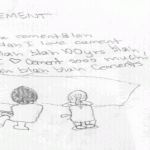 CEMENT
cement blah
blah I love cement
blah blah 100 yrs blah
I ♡ Cement sooo much!
blah blah Cements